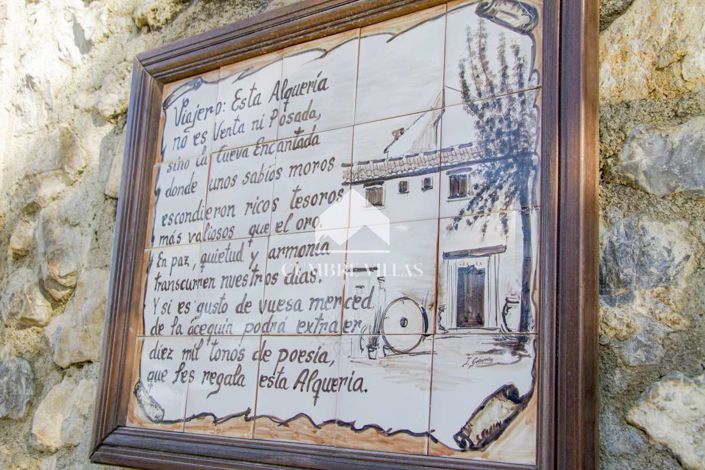 Viajero: Esta Alquería
no es Venta ni Posada,
sino la Cueva Encantada
donde unos sabios moros
escondieron ricos tesoros
más valiosos que el oro.
En paz, quietud y armonía
transcurren nuestros días.
Y si es gusto de vuesa merced
de la acequia podrá extraer
diez mil tonos de poesía,
que les regala esta Alquería.
CUMBRE VILLAS